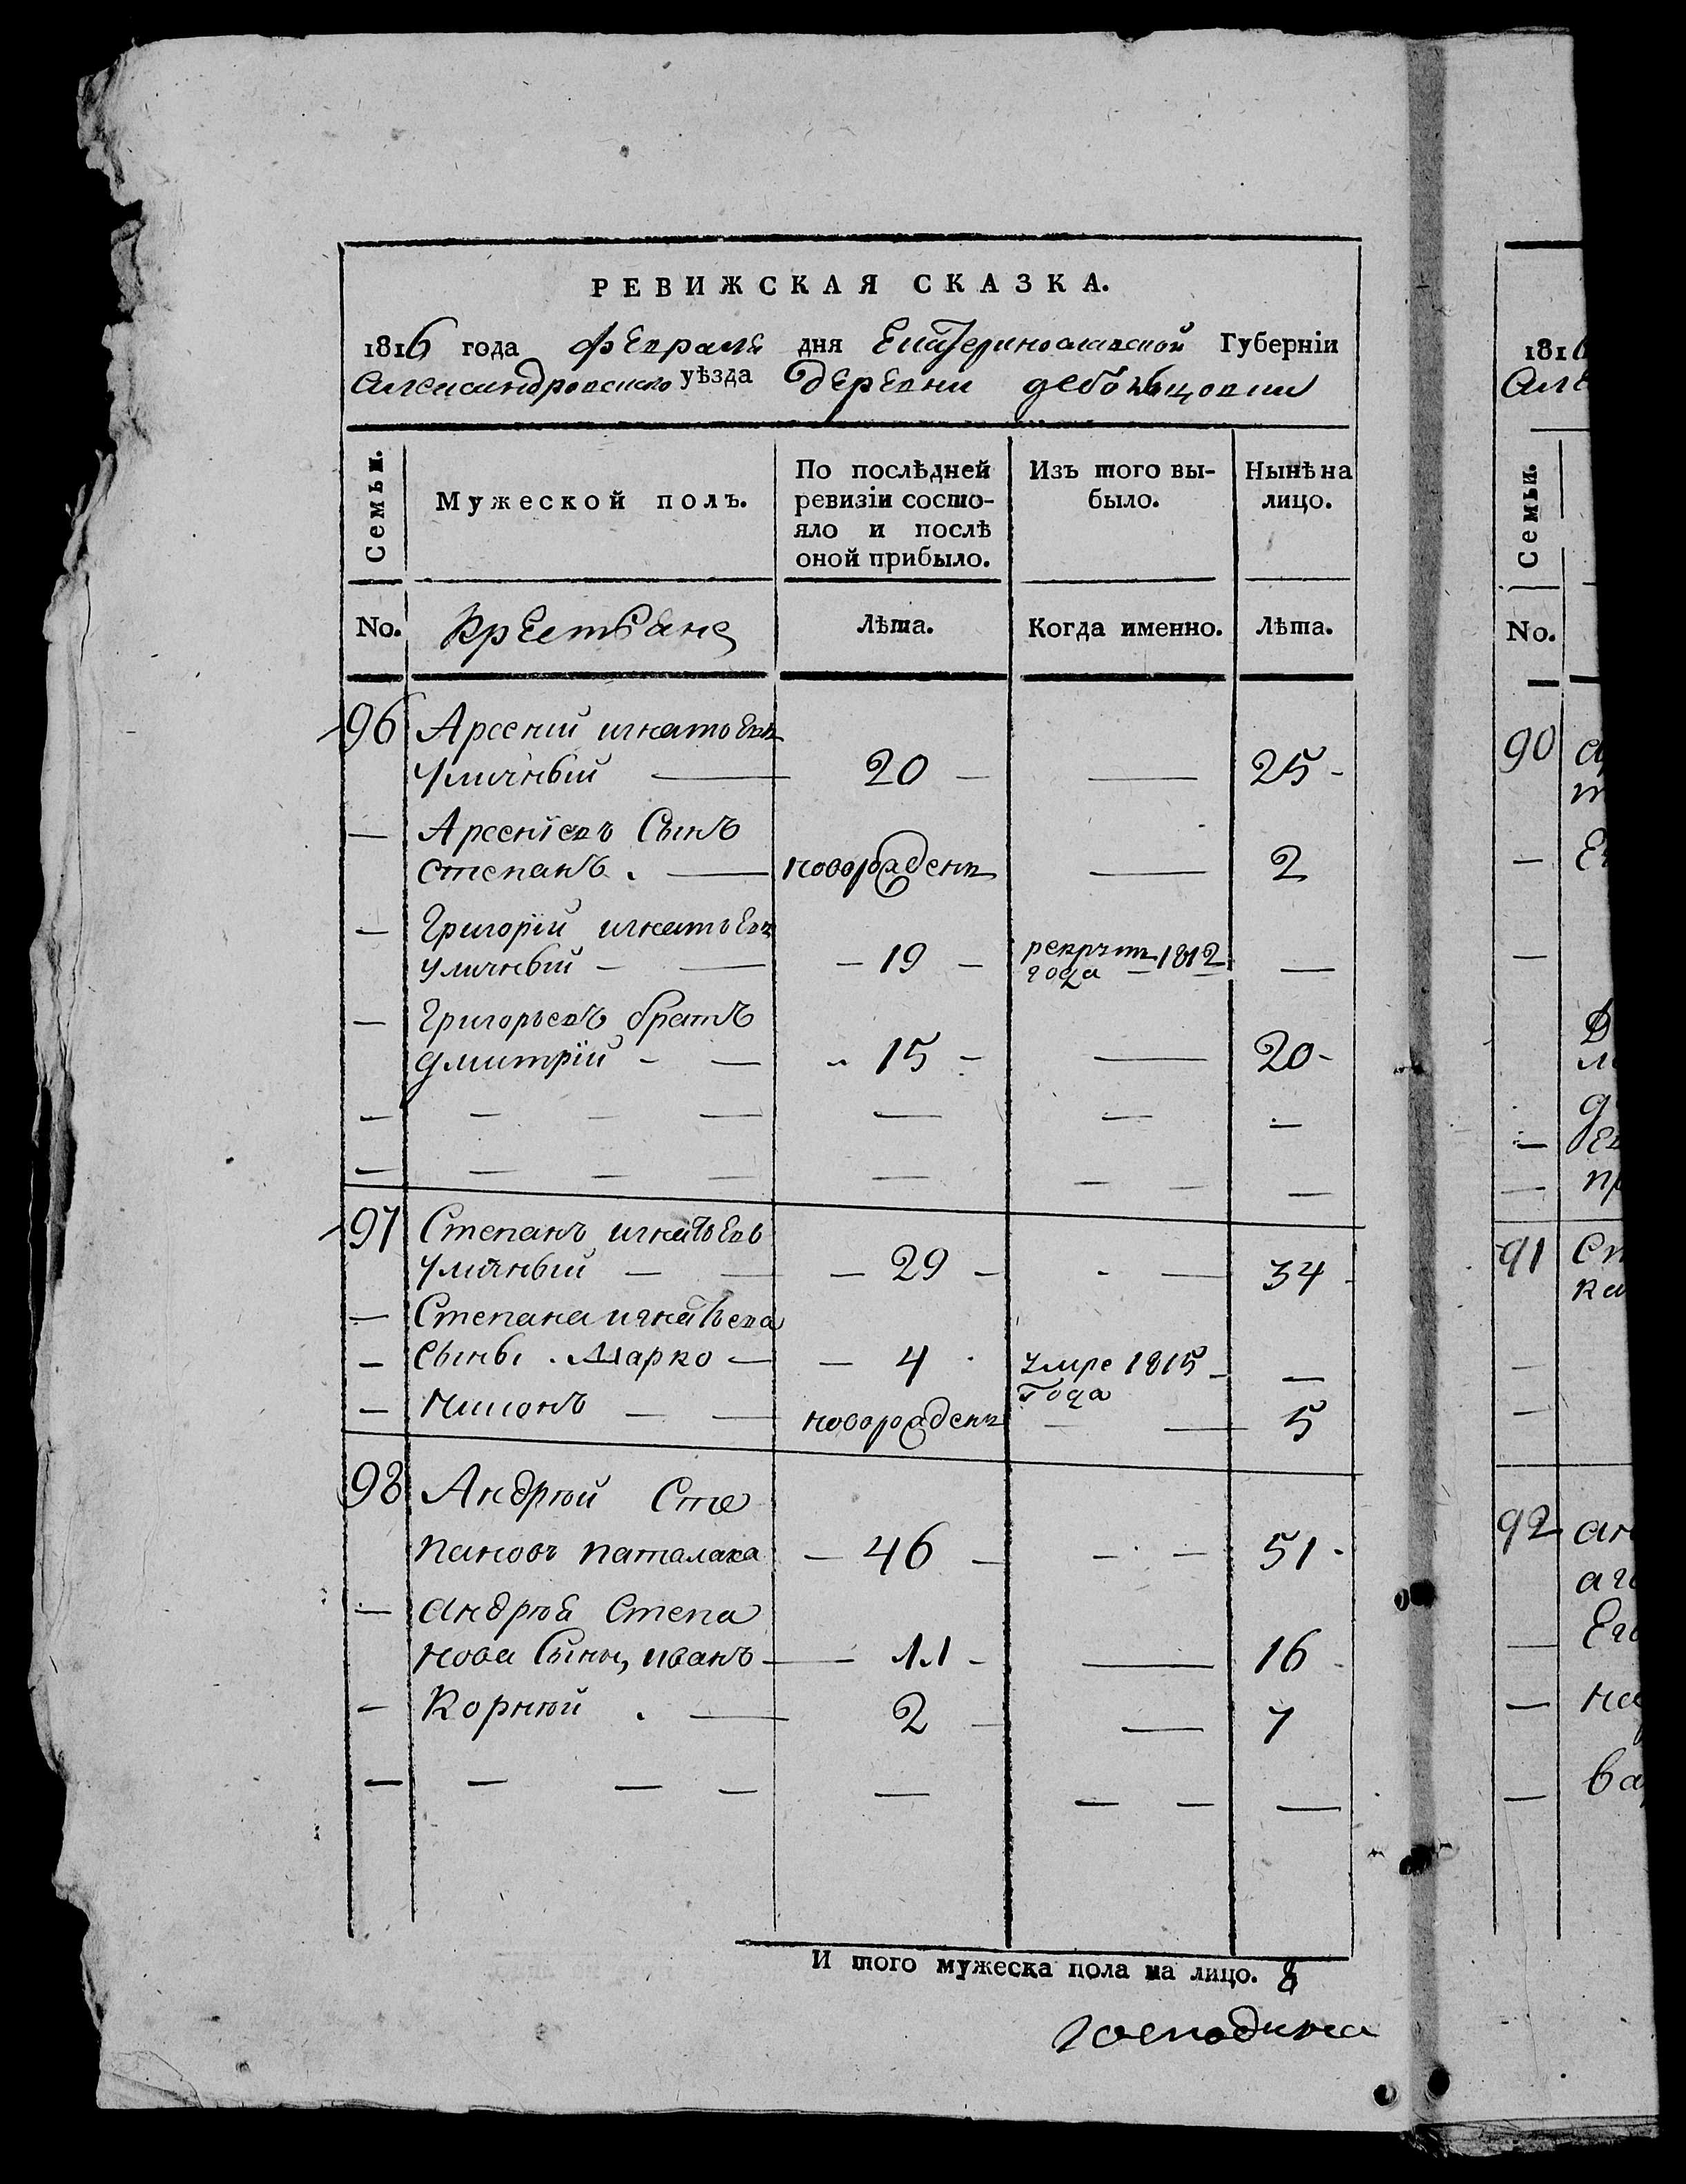 РЕВИЖСКАЯ СКАЗКА.
1816 года февраля дня Екатеринославской Губерніи
Александровского уѣзда деревни
Семьи.
Мужеской полъ.
По послѣдней
ревизіи состо-
яло и послѣ
оной прибыло.
Изъ того вы-
было.
Нынѣ на
лицо.
No. Крестьяне Лѣта. Когда именно. Лѣта.
96 Арсеній игнатьевъ
уличный — 20 — — 25 -
— Арсеніевъ Сынъ
степанъ . — новорожденъ — 2
— Григорій игнатьевъ
уличный - — — 19 — рекрутъ 1812 года — —
— Григорьевъ братъ
дмитрій - — - 15 - — 20 -
97 Степанъ игнатьевъ
уличный — — — 29 — - — 34 -
— Степана игнатьева
— сыны . Марко — — 4 - умре 1815 года —
— никонъ — — новорожденъ — — 5
98 Андрѣй Сте
пановъ паталака — 46 — — — 51 -
— андрѣя Степа
нова Сыны, иванъ — 11 - — 16 -
— Корнѣй . — 2 — — 7
И того мужеска пола на лицо. 8
господина
1816
Семьи.
No.
90
91
92